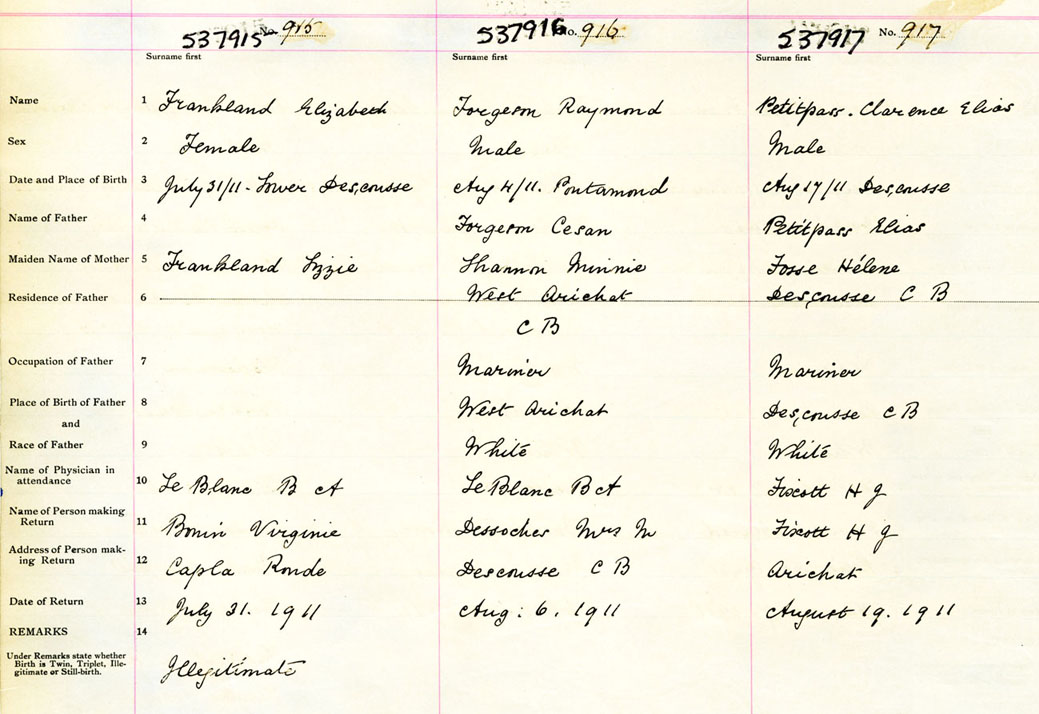 537915 No. 915 537916 No. 916 537917 No. 917
Surname first Surname first Surname first
Name 1 Frankland Elizabeth Forgeron Raymond Petitpass. Clarence Elias
Sex 2 Female Male Male
Date and Place of Birth 3 July 31/11 - Lower Descousse Aug 4/11. Aug 17/11 Descousse
Name of Father 4 Forgeron Cesan Petitpass Elias
Maiden Name of Mother 5 Frankland Lizzie Shannon Minnie Fosse Hélene
Residence of Father 6 West Arichat Descousse C B
C B
Occupation of Father 7 Mariner Mariner
Place of Birth of Father 8 West Arichat Descousse C B
and
Race of Father 9 White White
Name of Physician in
attendance 10 Le Blanc B A Le Blanc B A Fixott H J
Name of Person making
Return 11 Bonin Virginie Mrs M Fixott H J
Address of Person mak-
ing Return 12 Capla Ronde Descousse C B Arichat
Date of Return 13 July 31. 1911 Aug: 6. 1911 August 19. 1911
REMARKS 14
Under Remarks state whether
Birth is Twin, Triplet, Ille-
gitimate or Still-birth.
Illegitimate